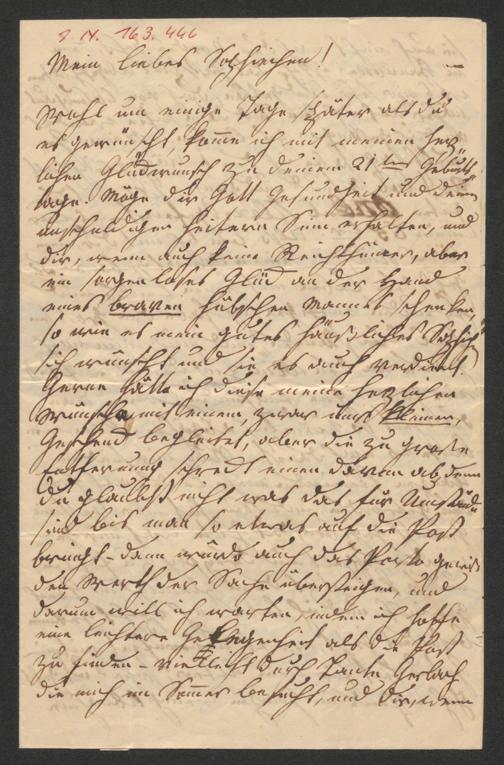 I. N. 163.446
Mein liebes Sophiechen!
Wohl um einige Tage später als du
es gewünscht komme ich mit meinen herz-
lichen Glückwunsch zu deinem 21ten Geburts-
tage. Möge dir Gott Gesundheit und deinen
unschuldigen heitern Sinn erhalten, und
dir, wenn auch keine Reichthümer, aber
ein sorgenloses Glück an der Hand
eines braven hübschen Mannes schenken,
so wie es mein gutes häußliches
sich wünscht und sie es auch verdient.
Gerne hätte ich diese meine herzlichen
Wünsche mit einem, zwar nur kleinen,
Geschenk begleitet, aber die zu große
Entfernung schreckt einen davon ab, denn
du glaubst nicht was das für Umstände
sind bis man so etwas auf die Post
bringt - dann würde auch das Porto gewiß
den Werth der Sache übersteigen, und
darum will ich warten, indem ich hoffe
eine leichtere Gelegenheit als die Post
zu finden - vielleicht durch Tante Gerlach
die mich im Sommer besucht, und dir, wenn